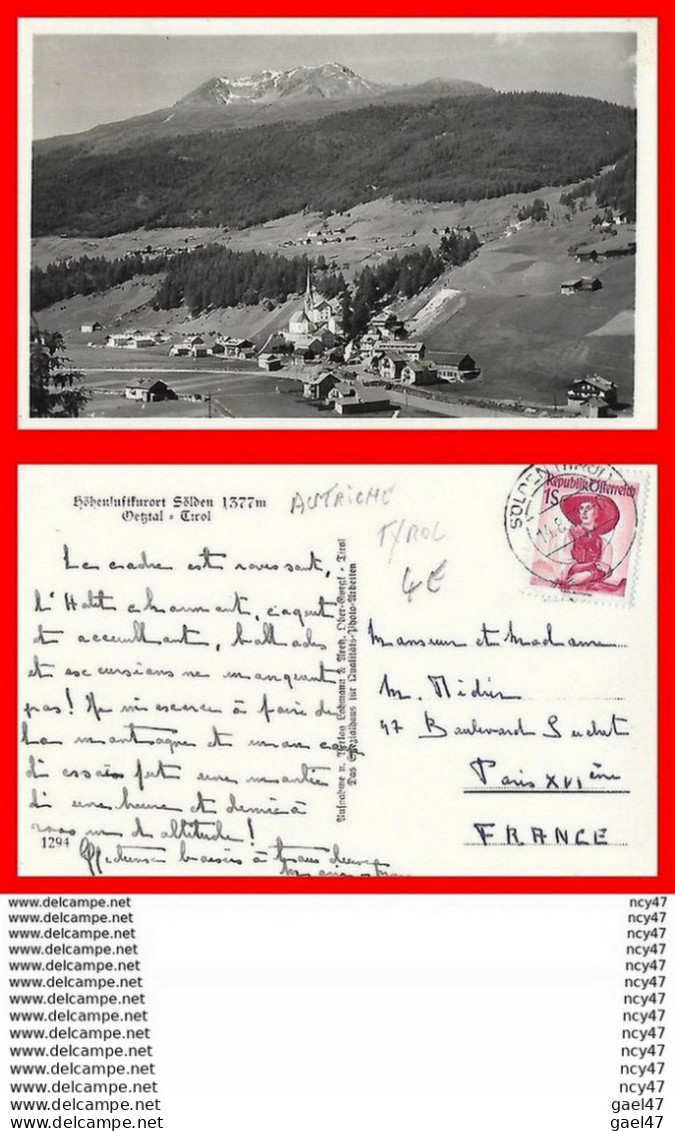 Höhenluftkurort Sölden 1377m
Oetztal - Tirol
AUTRICHE
TYROL
4€
SÖLDEN (TIROL)
Republik Österreich
1S
Le cadre est ravissant,
l'Hotel charmant, coquet
et accueillant, ballades
et excursions ne manquent
pas! Je m'exerce à faire de
la montagne et mon
d'essais fut une montée
d'une heure et demie à
m d'altitude!
baisers à tous deux
1294
Aufnahme u. Verlag Lohmann & Aretz, Ober-Gurgl - Tirol
Das Spezialhaus für Qualitäts-Photo-Arbeiten
Monsieur et Madame
M. Médien
47 Boulevard Suchet
Paris XVI ème
FRANCE
www.delcampe.net ncy47
www.delcampe.net ncy47
www.delcampe.net ncy47
www.delcampe.net ncy47
www.delcampe.net ncy47
www.delcampe.net ncy47
www.delcampe.net ncy47
www.delcampe.net ncy47
www.delcampe.net ncy47
www.delcampe.net ncy47
www.delcampe.net ncy47
www.delcampe.net ncy47
www.delcampe.net gael47
www.delcampe.net gael47